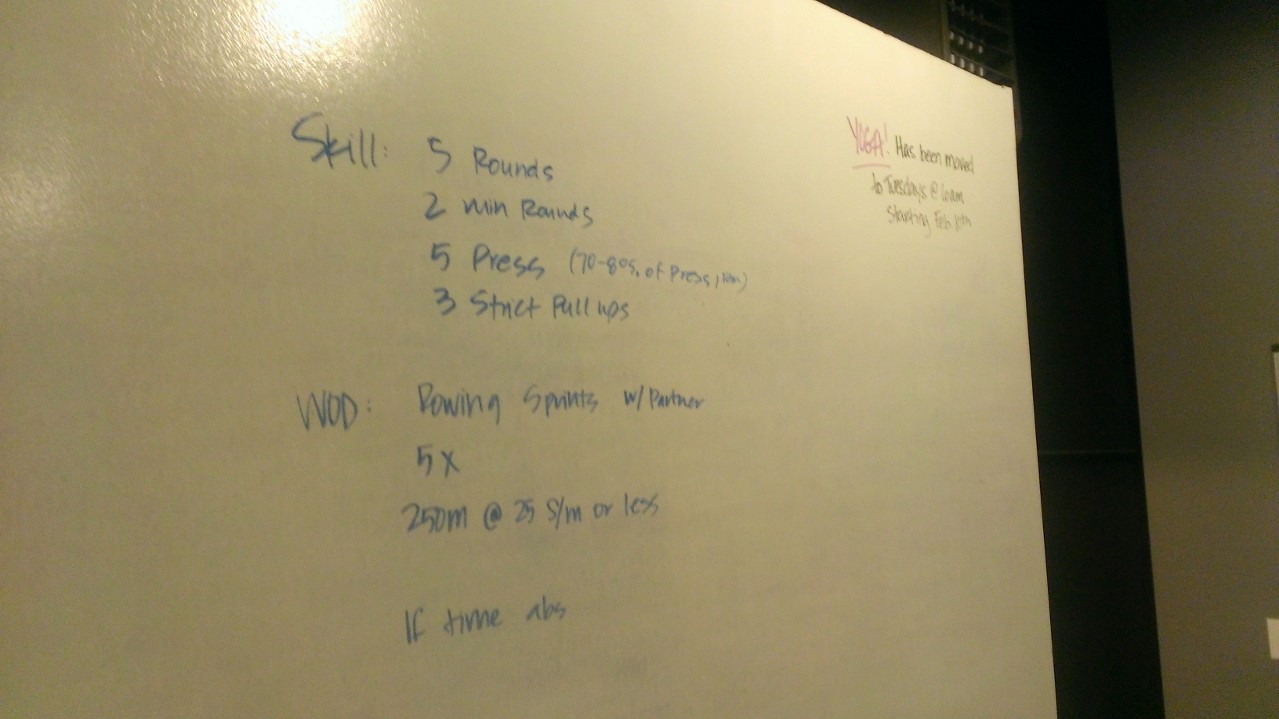 Skill: 5 Rounds
2 min Rounds
5 Press (70-80% of Press
3 Strict Pull ups
WOD: Rowing Sprints w/ Partner
5 X
250m @ 25 S/m or less
If time abs
YOGA! Has been moved
to Tuesdays @
Starting Feb 10th